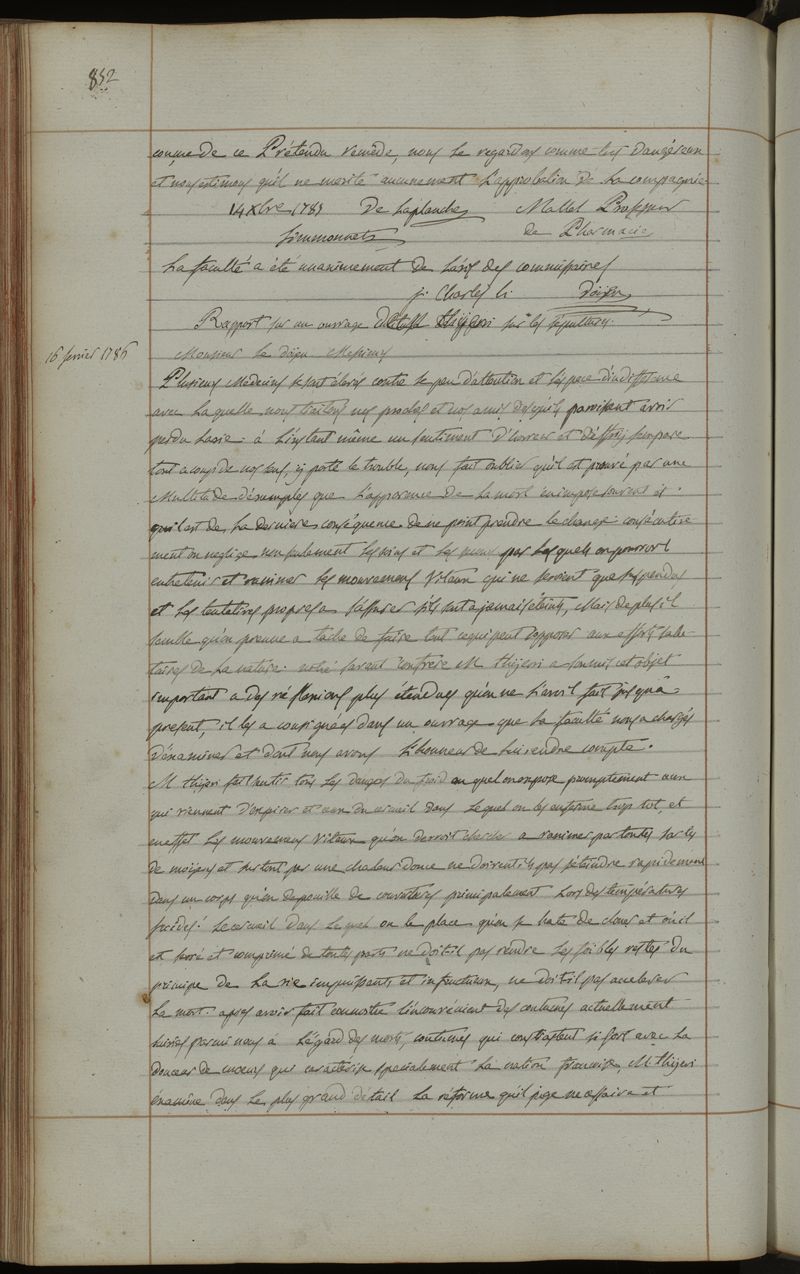 852
connue de ce Prétendu remède, nous le regardons comme très dangéreux
et nous estimons qu'il ne merite aucunement L'approbation de La compagnie
14 Xbre 1785 De Laplanche Mallet Professeur
Simmonnets de Pharmacie
La faculté a été unanimement de L'avis des commissaires
Doÿen
Rapport sur un ouvrage de M. Thiÿeri sur les sépultures
16 fevrier 1786 Monsieur Le doÿen Messieurs
Plusieurs Medecins se sont élevés contre le peu d'attention et L'espece d'indifference
avec La quelle nous traitons nos proches et nos amis dès qu'ils paroissent avoir
perdu La vie. à L'instant même un sentiment D'horreur et d'effroÿ s'empare
tout a coup de nos sens, ÿ porte le trouble, nous fait oublier qu'il est prouvé par une
Multitude d'exemples que L'apparence de La mort en impose souvent et
qu'il est de La derniere conséquence de ne point prendre le change. consécutive
ment on neglige non seulement Les soins et Les moÿens par Lesquels on pourroit
entretenir et ranimer Les mouvemens Vitaux qui ne seroient que suspendus
et Les tentatives propres a s'assurer s'ils sont a jamais éteints, Mais de plus il
semble qu'on prenne a tache de faire tout ce qui peut s'opposer aux efforts salu
taires de La nature. notre savant confrere M Thiÿeri a soumis cet objet
important a des réflexions plus étendues qu'on ne L'avoit fait jusqu'à
present, il les a consignées dans un ouvrage que La faculté nous a chargés
D'éxaminer et dont nous avons L'honneur de lui rendre compte.
M Thiÿeri fait sentir tous Les dangers du froid auquel on expose promptement ceux
qui viennent D'expirer et ceux du cercueil dans Lequel on les enferme trop tot, et
en effet Les mouvemens Vitaux qu'on devroit chercher a ranimer par toutes sortes
de moÿens et surtout par une chaleur douce ne doivent ils pas s'éteindre rapidement
dans un corps qu'on depouille de couvertures principalement Lors des temperatures
froides. Le cercueil dans Lequel on le place qu'on se hate de clouer et où il
est serré et comprimé de toutes parts ne doit il pas rendre Les foibles restes du
principe de La vie impuissants et infructueux, ne doit il pas accelerer
La mort. apres avoir fait connoitre L'inconvénient des coutumes actuellement
suivies parmi nous à L'égard des morts, coutumes qui contrastent si fort avec La
douceur de moeurs qui caractérise specialement La nation francoise, M Thiÿeri
éxamine dans Le plus grand détail La réforme qu'il juge necessaire et